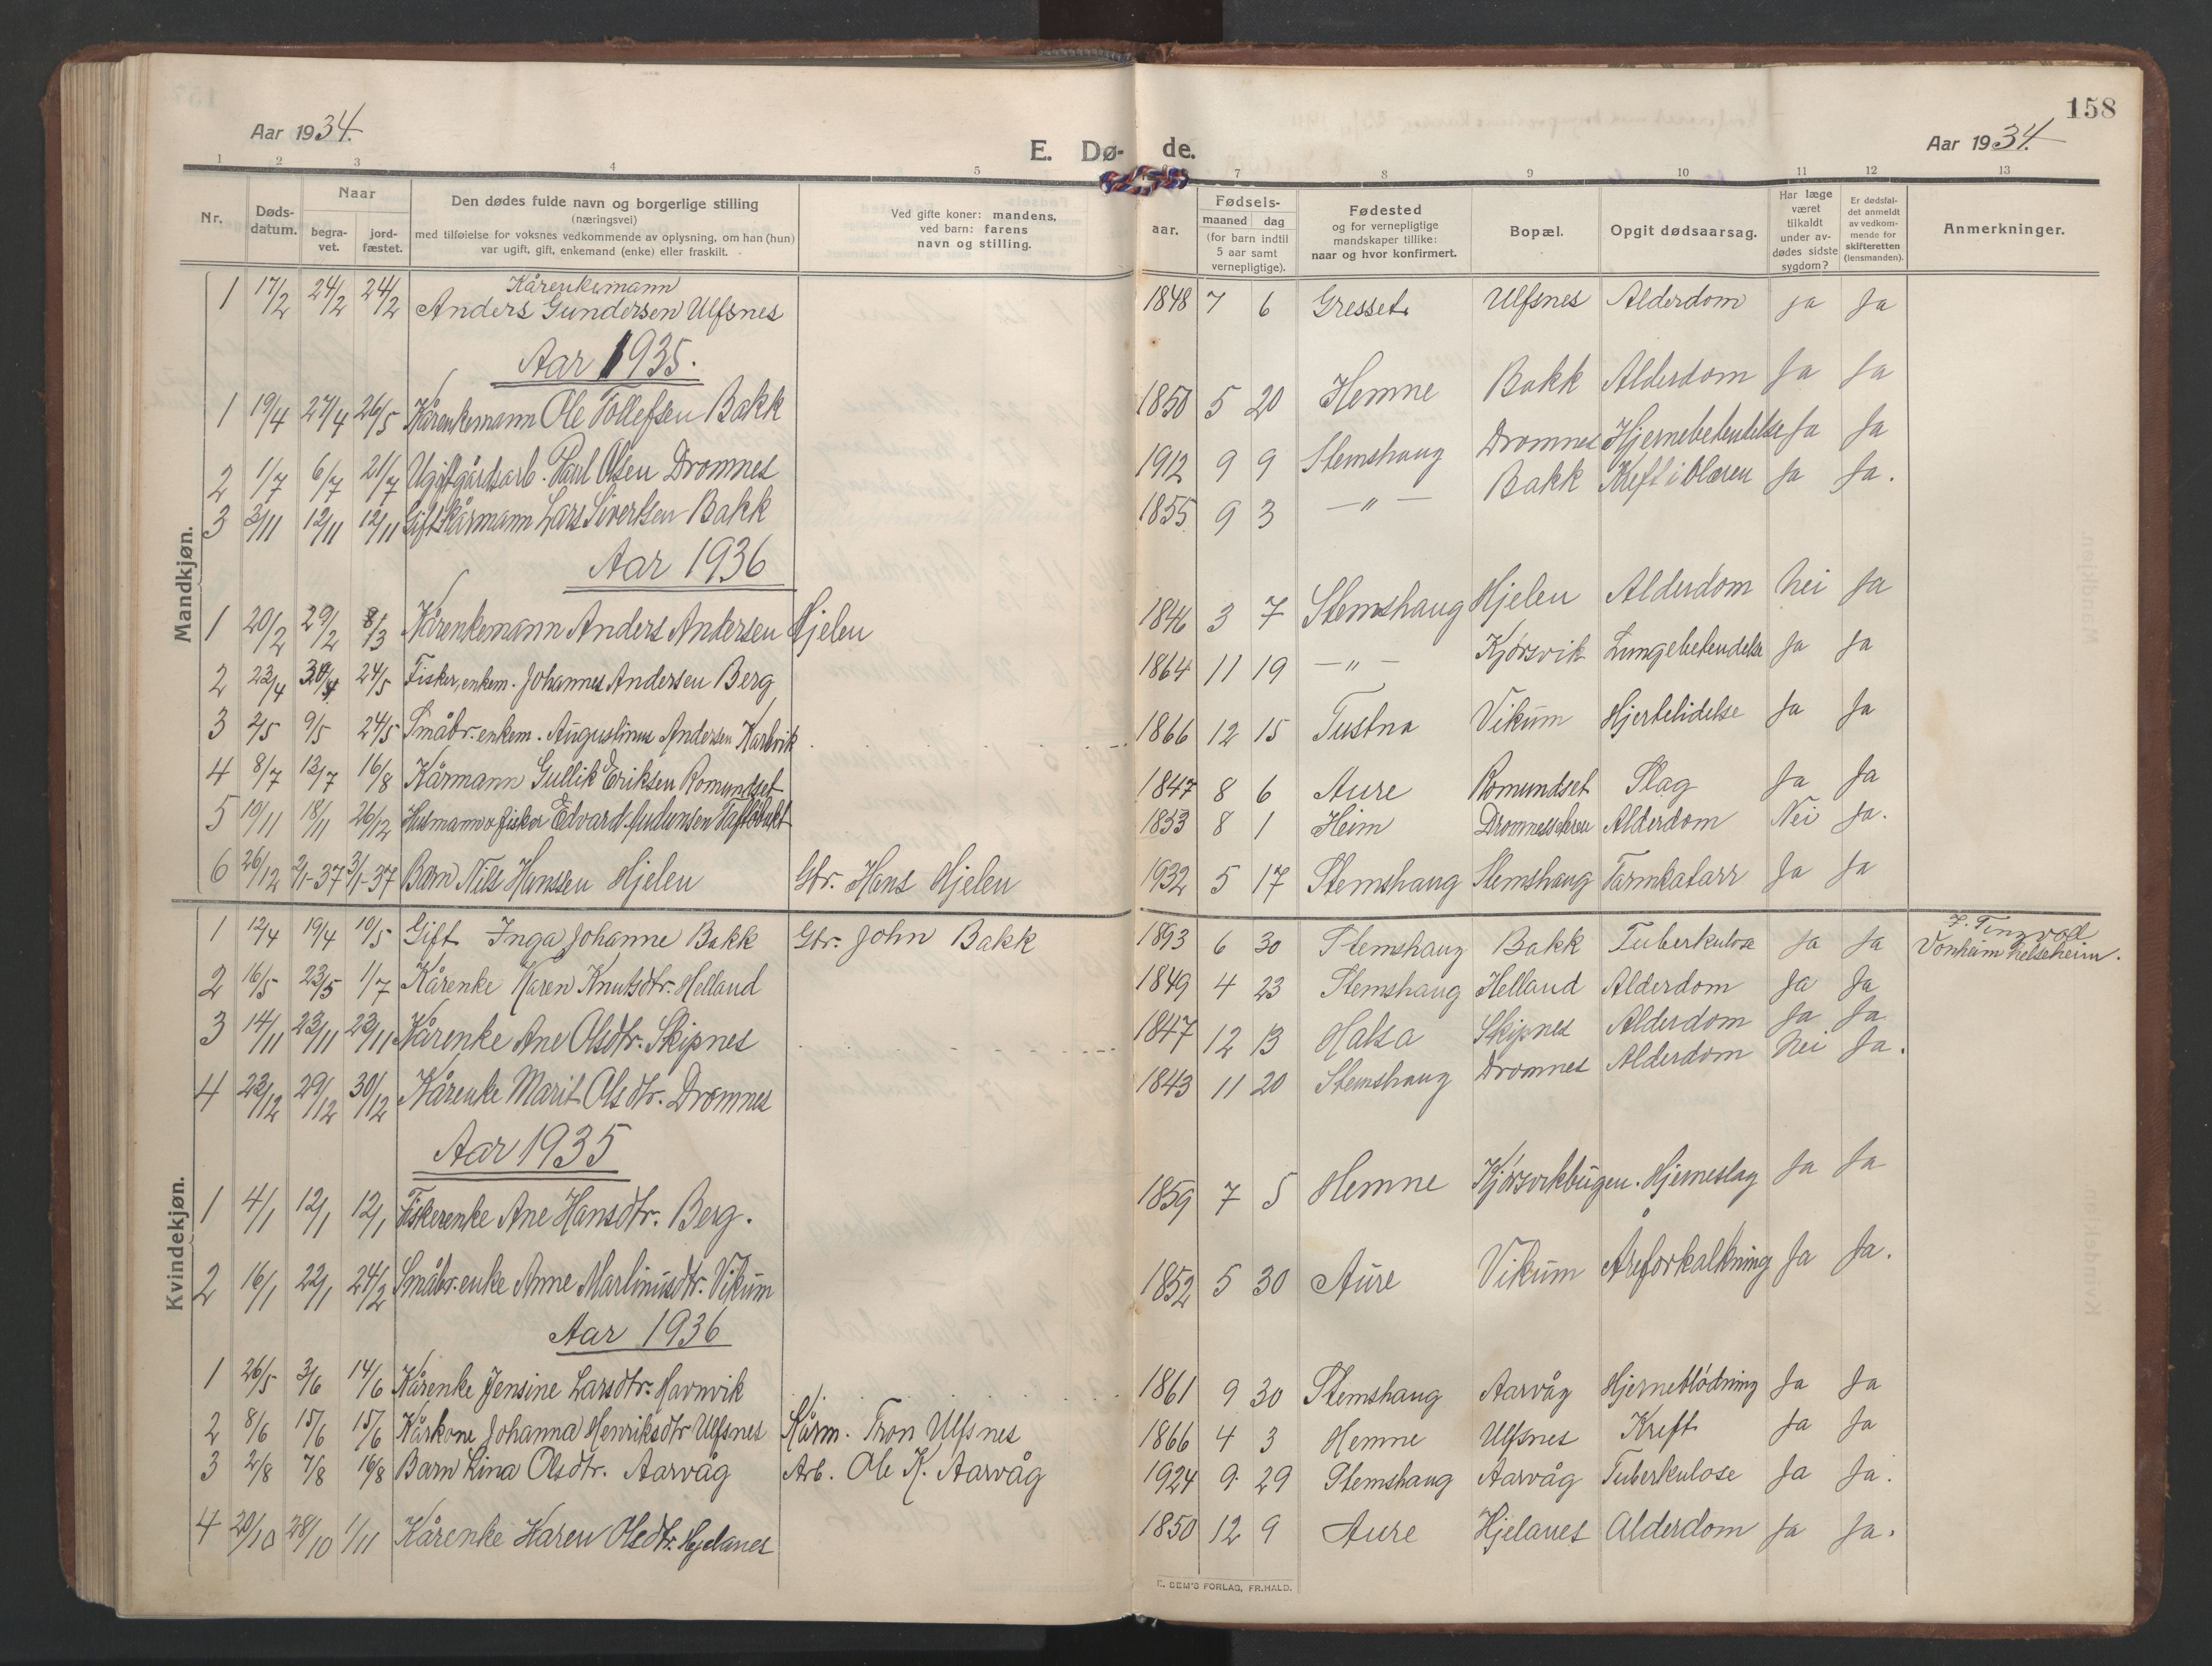 158
Aar 1934.
E. Dø-
de.
Aar 1934.
1 2 3 4 5 7 8 9 10 11 12 13
Nr.
Døds-
datum.
Naar
begra-
vet.
jord-
fæstet.
Den dødes fulde navn og borgerlige stilling
(næringsvei)
med tilføielse for voksnes vedkommende av oplysning, om han (hun)
var ugift, gift, enkemand (enke) eller fraskilt.
Ved gifte koner: mandens,
ved barn: farens
navn og stilling.
aar.
Fødsels-
maaned dag
(for barn indtil
5 aar samt
vernepligtige).
Fødested
og for vernepligtige
mandskaper tillike:
naar og hvor konfirmert.
Bopæl.
Opgit dødsaarsag.
Har læge
været
tilkaldt
under av-
dødes sidste
sygdom?
Er dødsfal-
det anmeldt
av vedkom-
mende for
skifteretten
(lensmanden).
Anmerkninger.
Mandkjøn.
Kårenkemann
1 17/2 24/2 24/2 Anders Gundersen Ulfsnes 1848 7 6 Gresset. Ulfsnes Alderdom ja Ja
Aar 1935.
1 19/4 27/4 26/5 Kårenkemann Ole Tollefsen Bakk 1850 5 20 Hemne Bakk Alderdom Ja Ja
2 1/7 6/7 21/7 Ugift gårdsarb. Paul Olsen Dromnes 1912 9 9 Stemshaug Dromnes Hjernebetendelse Ja Ja
3 3/11 12/11 12/11 Gift kårmann Lars Sivertsen Bakk 1855 9 3 —"— Bakk Kreft i blæren Ja Ja.
Aar 1936
1 20/2 29/2 8/3 Kårenkemann Anders Andersen Hjelen 1846 3 7 Stemshaug Hjelen Alderdom Nei Ja
2 23/4 30/4 24/5 Fisker, enkem. Johannes Andersen Berg 1864 11 19 —"— Kjörsvik Lungebetendelse Ja Ja
3 2/5 9/5 24/5 Småbr. enkem. Augustinus Andersen Karlvik 1866 12 15 Tustna Vikum Hjertelidelse Ja Ja
4 8/7 13/7 16/8 Kårmann Gullik Eriksen Romundset 1847 8 6 Aure Romundset Slag Ja Ja
5 10/11 18/11 26/12 Husmann o fisker Edvard Audunsen 1853 8 1 Heim Alderdom Nei Ja.
6 26/12 2/1-37 3/1-37 Barn Nils Hanssen Hjelen Gbr. Hans Hjelen 1932 5 17 Stemshaug Stemshaug Tarmkatarr Ja Ja
Kvindekjøn.
1 12/4 19/4 10/5 Gift Inga Johanne Bakk Gbr. John Bakk 1893 6 30 Stemshaug Bakk Tuberkulose Ja Ja Vonheim helseheim.
2 16/5 23/5 1/7 Kårenke Karen Knutsdtr. Helland 1849 4 23 Stemshaug Helland Alderdom Ja Ja
3 14/11 23/11 23/11 Kårenke Ane Olsdtr. Skipnes 1847 12 13 Halsa Skipnes Alderdom Ja Ja
4 22/12 29/12 30/12 Kårenke Marit Olsdtr. Dromnes 1843 11 20 Stemshaug Dromnes Alderdom Nei Ja.
Aar 1935
1 4/1 12/1 12/1 Fiskerenke Ane Hansdtr. Berg. 1859 7 5 Hemne Kjörsvikbugen. Hjerneslag Ja Ja
2 16/1 22/1 24/2 Småbr. enke Anne Martinusdtr. Vikum 1852 5 30 Aure Vikum Åreforkalkning Ja Ja.
Aar 1936
1 26/5 3/6 14/6 Kårenke Jensine Larsdtr. Havnvik 1861 9 30 Stemshaug Aarvåg Hjerneblödning Ja Ja
2 8/6 15/6 15/6 Kårkone Johanna Henriksdtr Ulfsnes Kårm. Tron Ulfsnes 1866 4 3 Hemne Ulfsnes Kreft Ja Ja
3 2/8 7/8 16/8 Barn Lina Olsdtr. Aarvåg Arb. Ole K. Aarvåg 1924 9 29 Stemshaug Aarvåg Tuberkulose Ja Ja.
4 20/10 28/10 1/11 Kårenke Karen Olsdtr. Hjelanes 1850 12 9 Aure Hjelanes Alderdom Ja Ja.
E. SEM'S FORLAG, FR.HALD.